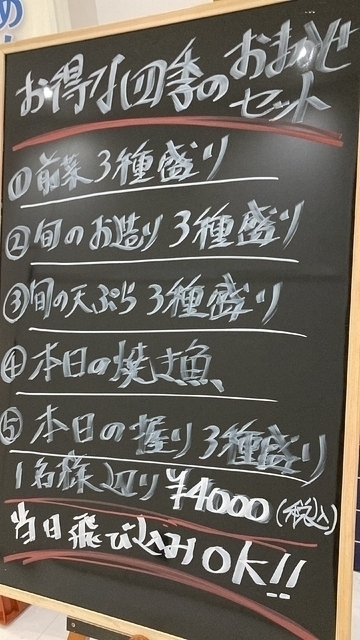 お得な四季のおまかせ
セット
①前菜3種盛り
②旬のお造り3種盛り
③旬の天ぷら3種盛り
④本日の焼き魚、
⑤本日の握り3種盛り
1名様辺り¥4000(税込)
当日飛び込みOK!!